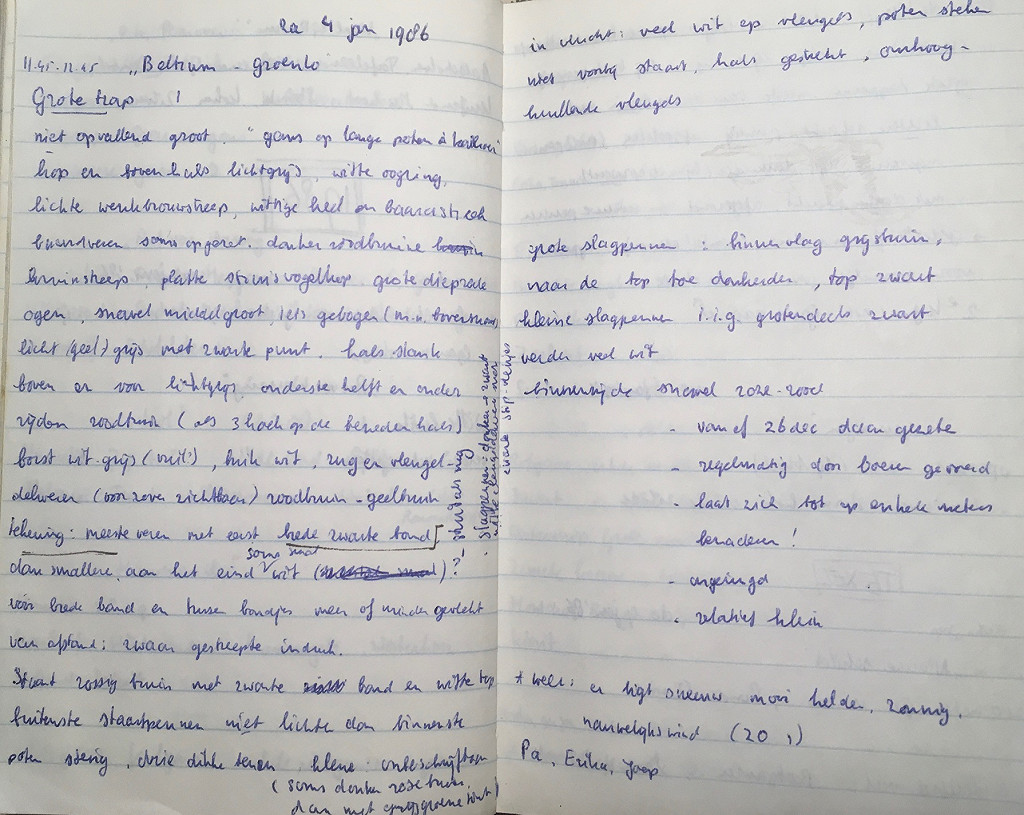 za 4 jan 1986
11.45-12.45 „Beltrum - Groenlo
Grote trap !
niet opvallend groot. " gans op lange poten à
kop en bovenhals lichtgrijs, witte oogring,
lichte wenkbrauwstreep, wittige keel en baardstreek
baardveren soms opgezet. donker roodbruine
kruinstreep, platte struisvogelkop. grote dieprode
ogen, snavel middelgroot, iets gebogen (m.n. bovensnavel)
licht (geel) grijs met zwarte punt. hals slank
boven en voor lichtgrijs, onderste helft en onder
zijden roodbruin (als 3hoek op de beneden hals)
borst wit-grijs (vuil?), buik wit, rug en vleugel-
dekveren (voor zover zichtbaar) roodbruin-geelbruin
tekening: meeste veren met eerst brede zwarte band
dan smallere, aan het eind soms smal wit ( )?
vóór brede band en tussen bandjes meer of minder gevlekt
van afstand: zwaar gestreepte indruk.
Staart rossig bruin met zwarte band en witte top
buitenste staartpennen niet lichter dan binnenste
poten stevig, drie dikke tenen, kleur: onbeschrijfbaar
(soms donker roze bruin,
dan met grijsgroene tint)
- stuit als rug
- slagpennen: donker + zwart
witte vleugeldekveren met
zwarte stip-
in vlucht: veel wit op vleugels, poten steken
niet voorbij staart, hals gestrekt, omhoog-
krullende vleugels
grote slagpennen: binnenvlag grijsbruin,
naar de top toe donkerder, top zwart
kleine slagpennen i.i.g. grotendeels zwart
verder veel wit
binnenzijde snavel roze-rood
- vanaf 26 dec daar gezeten
- regelmatig door boeren gevoerd
- laat zich tot op enkele meters
benaderen!
- ongeringd
- relatief klein
* weer: er ligt sneeuw. mooi helder, zonnig,
nauwelijks wind (ZO 1)
Pa, Erika, Joop